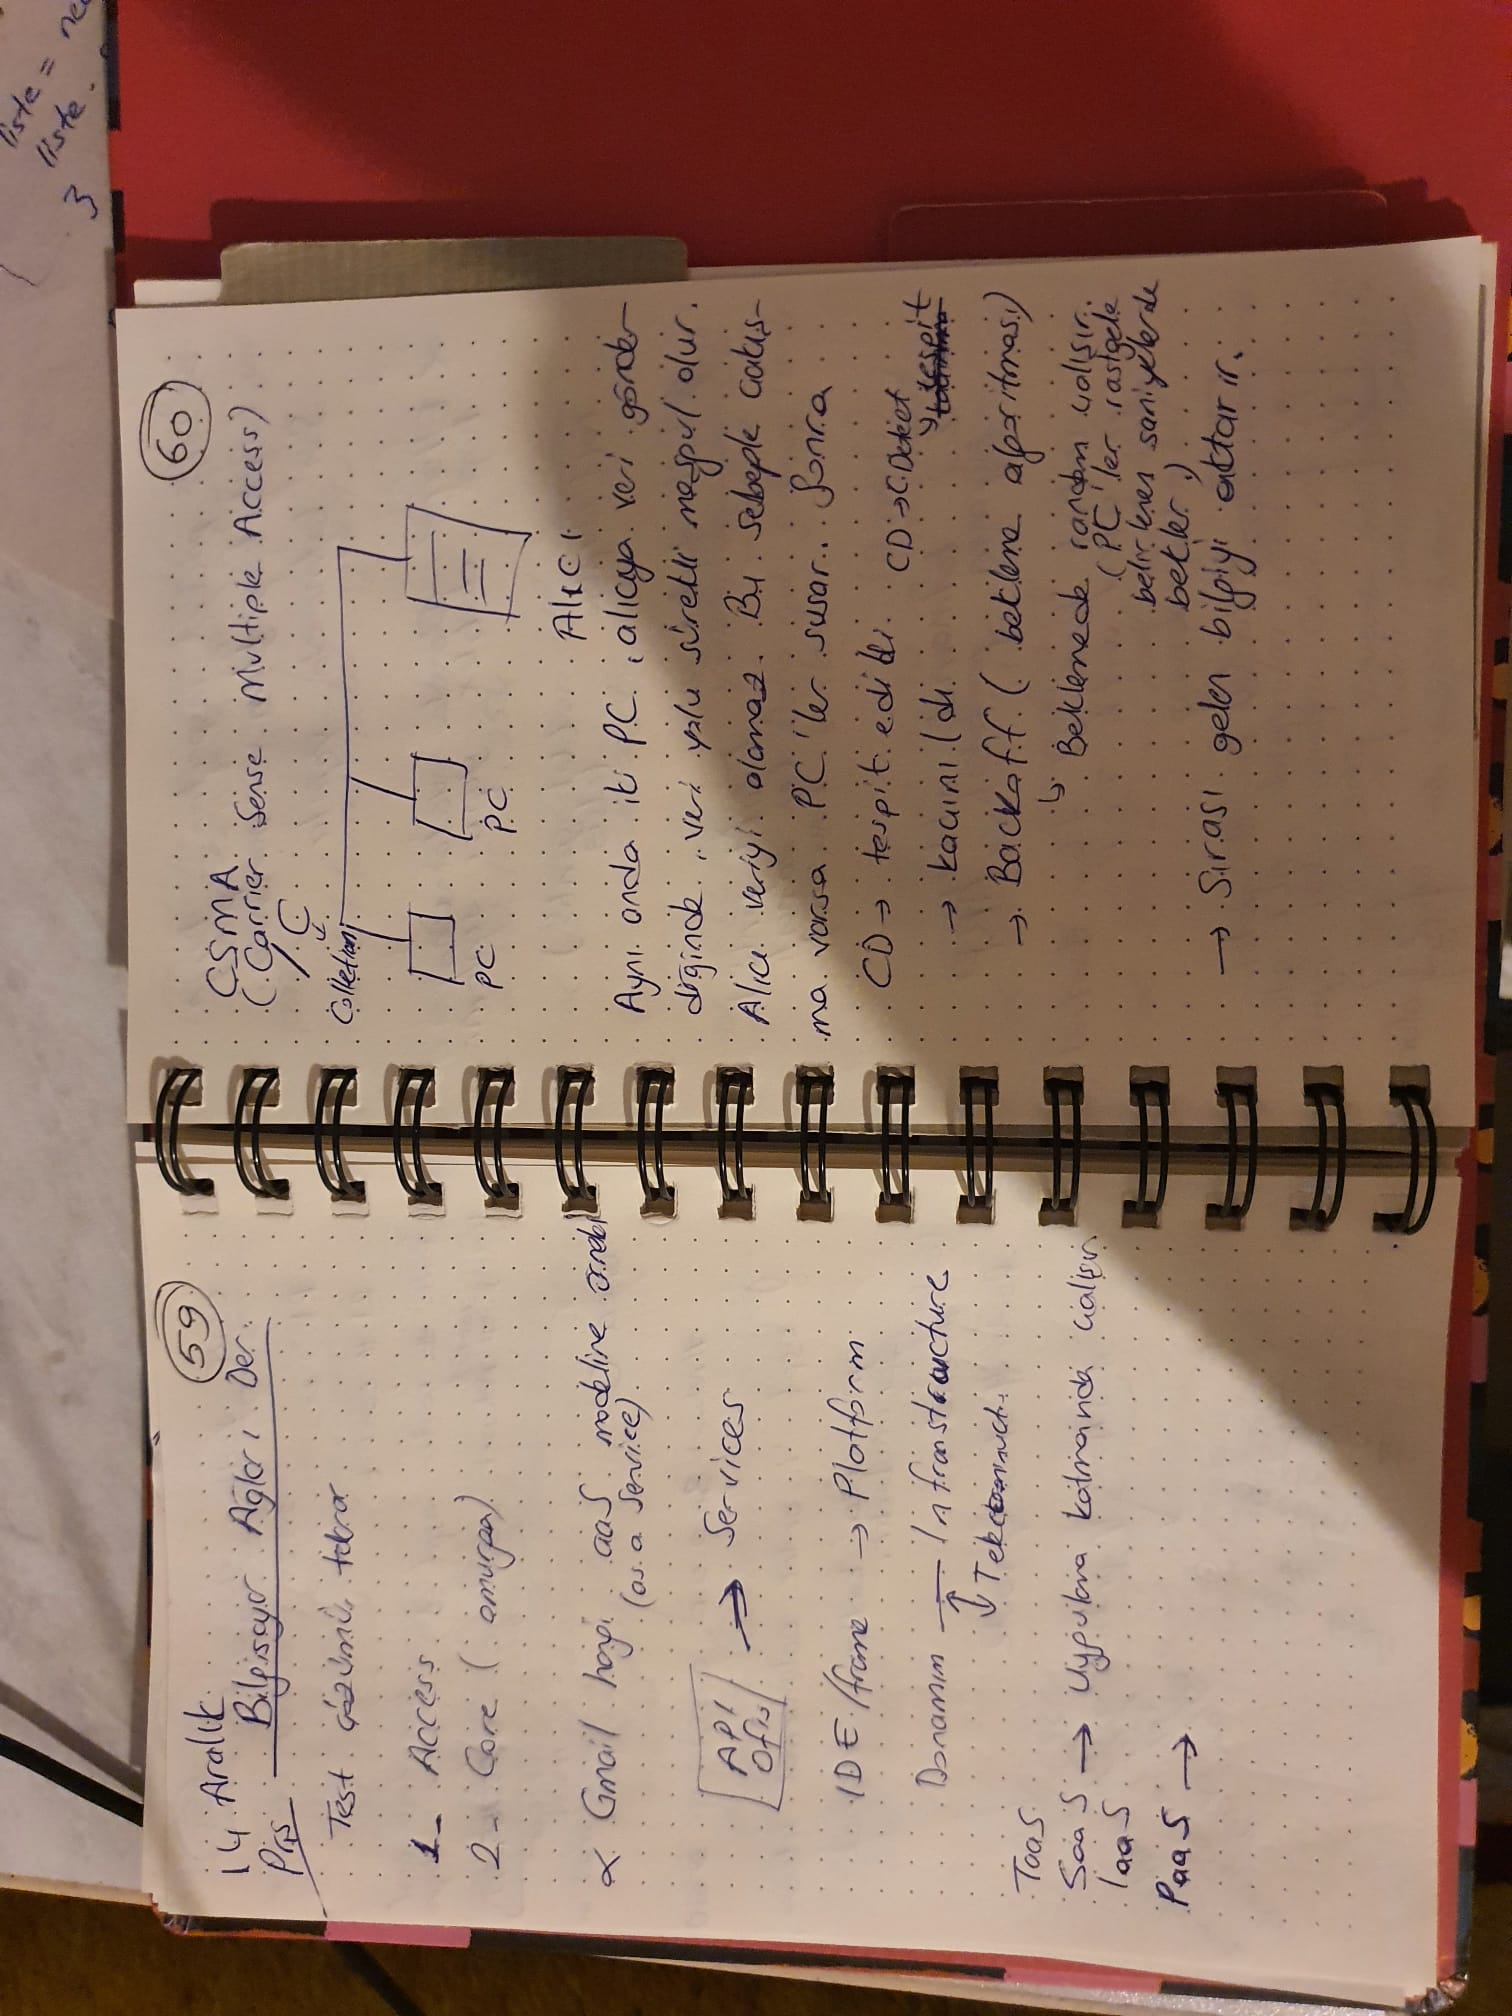 59
14 Aralık
Prş Bilgisayar Ağları Der.
Test çözümü tekrar
1- Access
2- Core (omurga)
α Gmail hangi aaS modeline örnek
(as a Service)
API
Ofis → Services
IDE/frame → Platform
Donanım — Infrastructure
SaaS → Uygulama katmanında çalışır
IaaS
PaaS →
60
CSMA
(Carrier Sense Multiple Access)
/ C
PC
PC
Alıcı
Aynı anda iki PC, alıcıya veri gönder-
diğinde, veri yolu sürekli meşgul olur.
Alıcı veriyi alamaz. Bu sebeple çakış-
ma varsa PC'ler susar. Sonra
CD → tespit edildi.
CD → C.Detect
tespit
→ kaçınıldı
→ Backoff (bekleme algoritması)
Beklemede random çalışır.
(PC'ler rastgele
belirlenen saniyelerde
bekler.)
→ Sırası gelen bilgiyi aktarır.
liste = ne
liste.
3